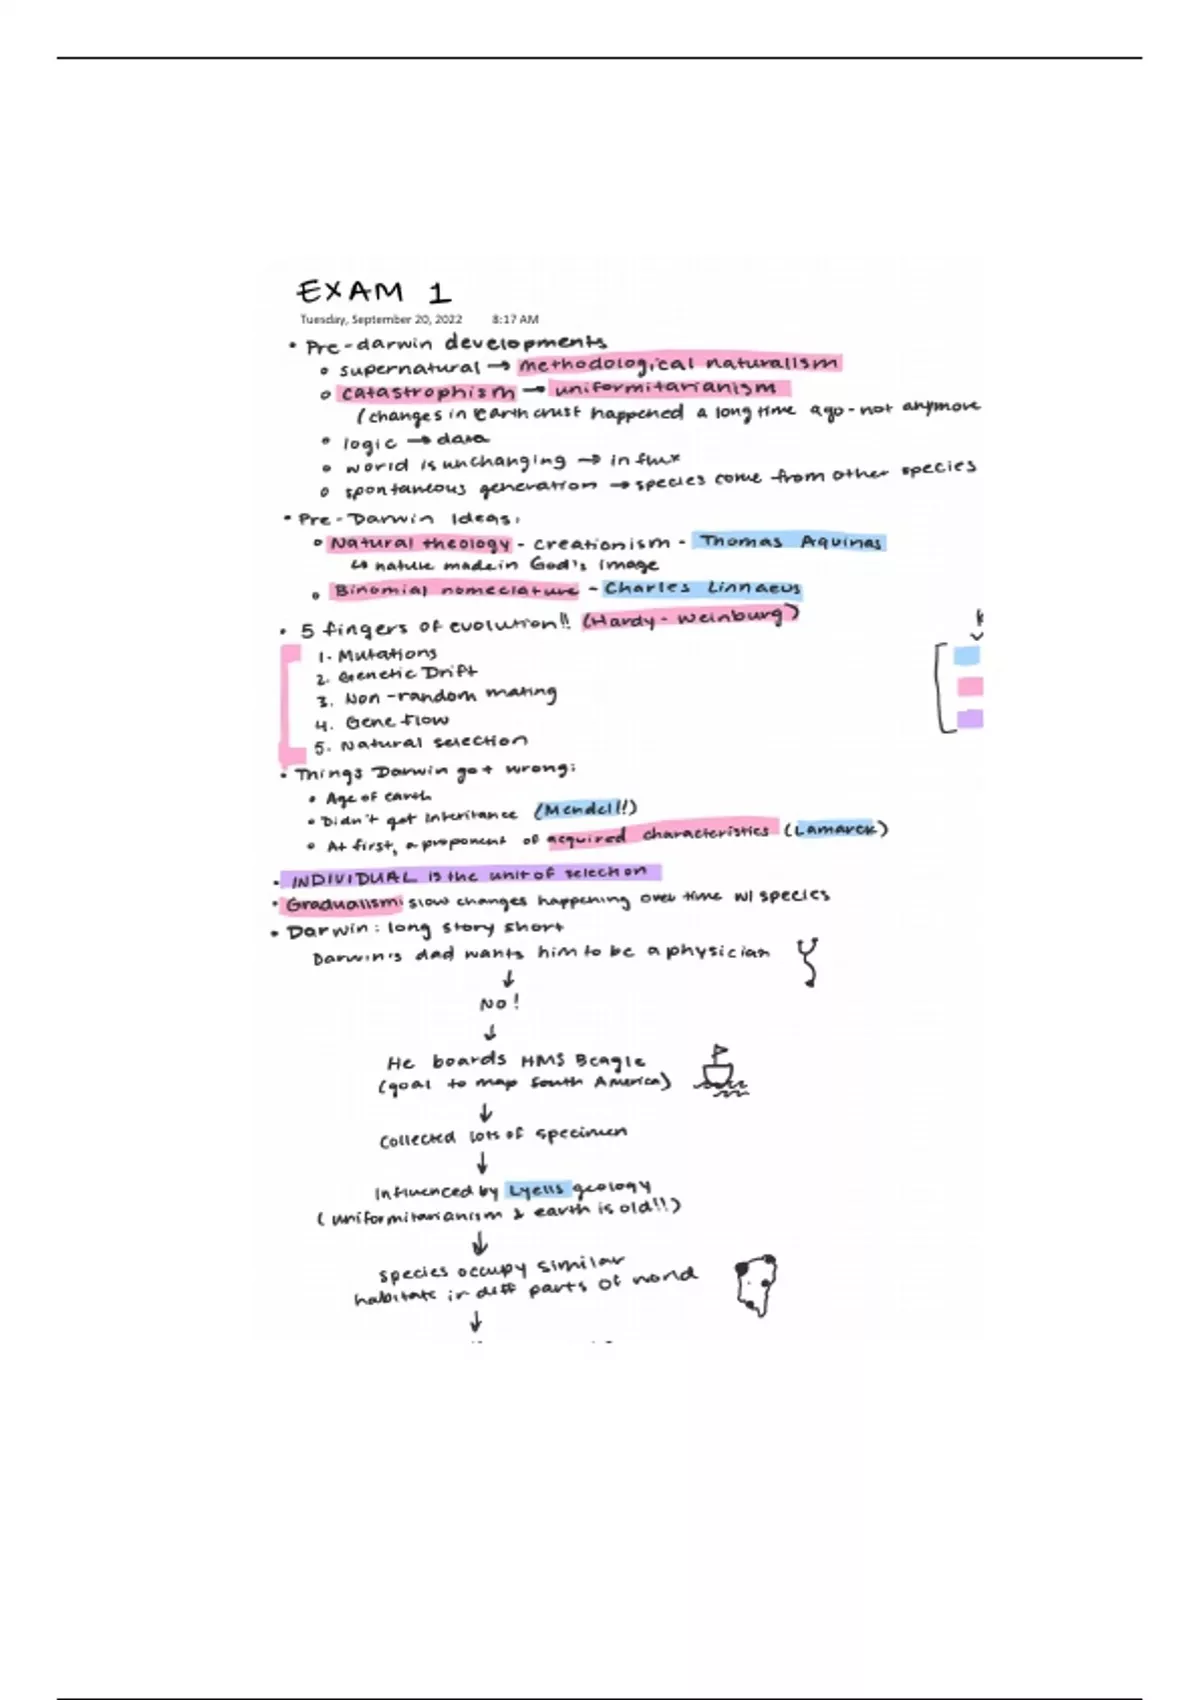 EXAM 1
Tuesday, September 20, 2022 8:17 AM
• Pre-darwin developments
o supernatural → methodological naturalism
o catastrophism → uniformitarianism
(changes in Earth crust happened a long time ago - not anymore
• logic → data
• world is unchanging → in flux
o spontaneous generation → species come from other species
• Pre-Darwin Ideas:
o Natural theology - creationism - Thomas Aquinas
↳ nature made in God's image
o Binomial nomeclature - Charles Linnaeus
• 5 fingers of evolution!! (Hardy-Weinburg)
1. Mutations
2. Genetic Drift
3. Non-random mating
4. Gene flow
5. Natural selection
• Things Darwin got wrong:
• Age of earth
• Didn't get Inheritance (Mendel!!)
• At first, a proponent of acquired characteristics (Lamarck)
• INDIVIDUAL is the unit of selection
• Gradualism: slow changes happening over time w/ species
• Darwin: long story short
Darwin's dad wants him to be a physician
↓
No!
↓
He boards HMS Beagle
(goal to map South America)
↓
Collected lots of specimen
↓
Influenced by Lyells geology
(uniformitarianism & earth is old!!)
↓
species occupy similar
habitats in diff parts of world
↓